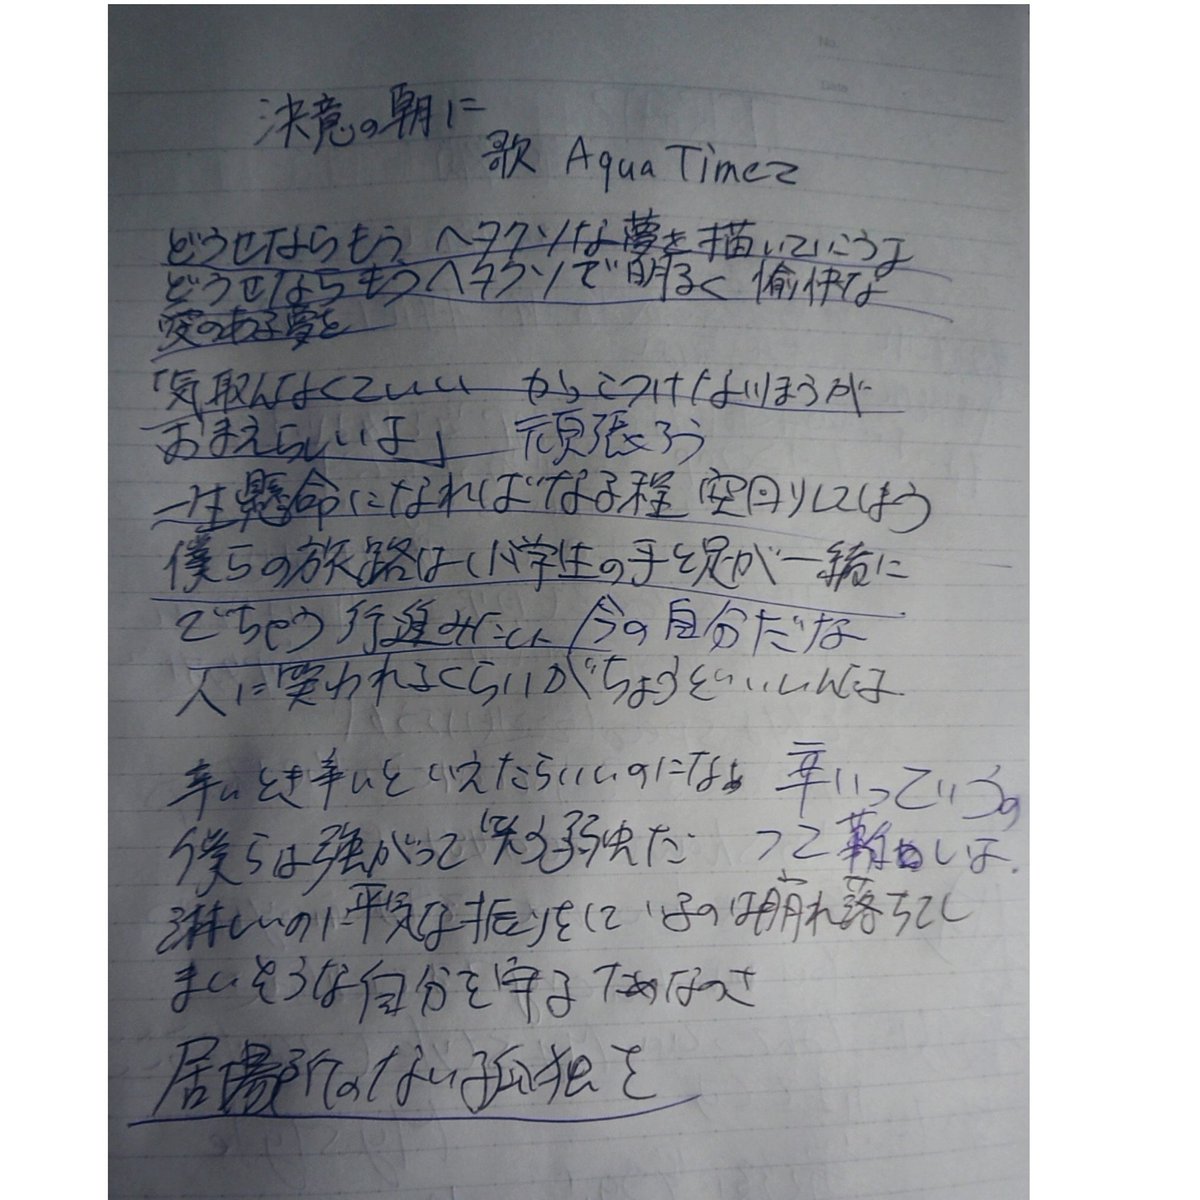 決意の朝に
歌 Aqua Timez
どうせならもう ヘタクソな夢を描いていこうよ
どうせならもうヘタクソで明るく 愉快な
愛のある夢を
「気取んなくていい かっこつけないほうが
おまえらしいよ」 頑張ろう
一生懸命になればなる程 空回りしてしまう
僕らの旅路は 小学生の手と足が一緒に
でちゃう 行進みたい 今の自分だな
人に笑われるくらいがちょうどいいんだよ
辛いとき辛いといえたらいいのになぁ 辛いっていうの
僕らは強がって笑う弱虫だ って難しいよ.
淋しいのに平気な振りをしているのは崩れ落ちてし
まいそうな自分を守るためなのさ
居場所のない孤独を